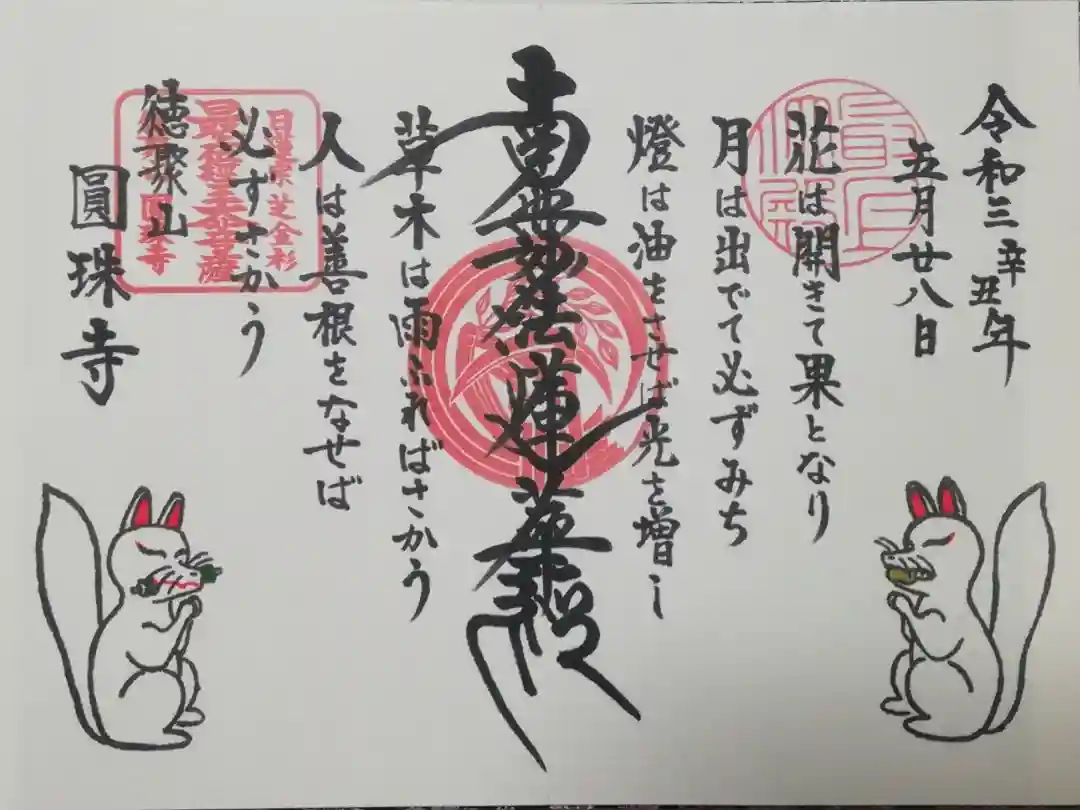 令和三辛丑年
五月廿八日
花は開きて果となり
月は出でて必ずみち
燈は油をさせば光を増し
南無妙法蓮華経
草木は雨ふればさかう
人は善根をなせば
必ずさかう
徳聚山
圓珠寺
日蓮宗 芝金杉
最